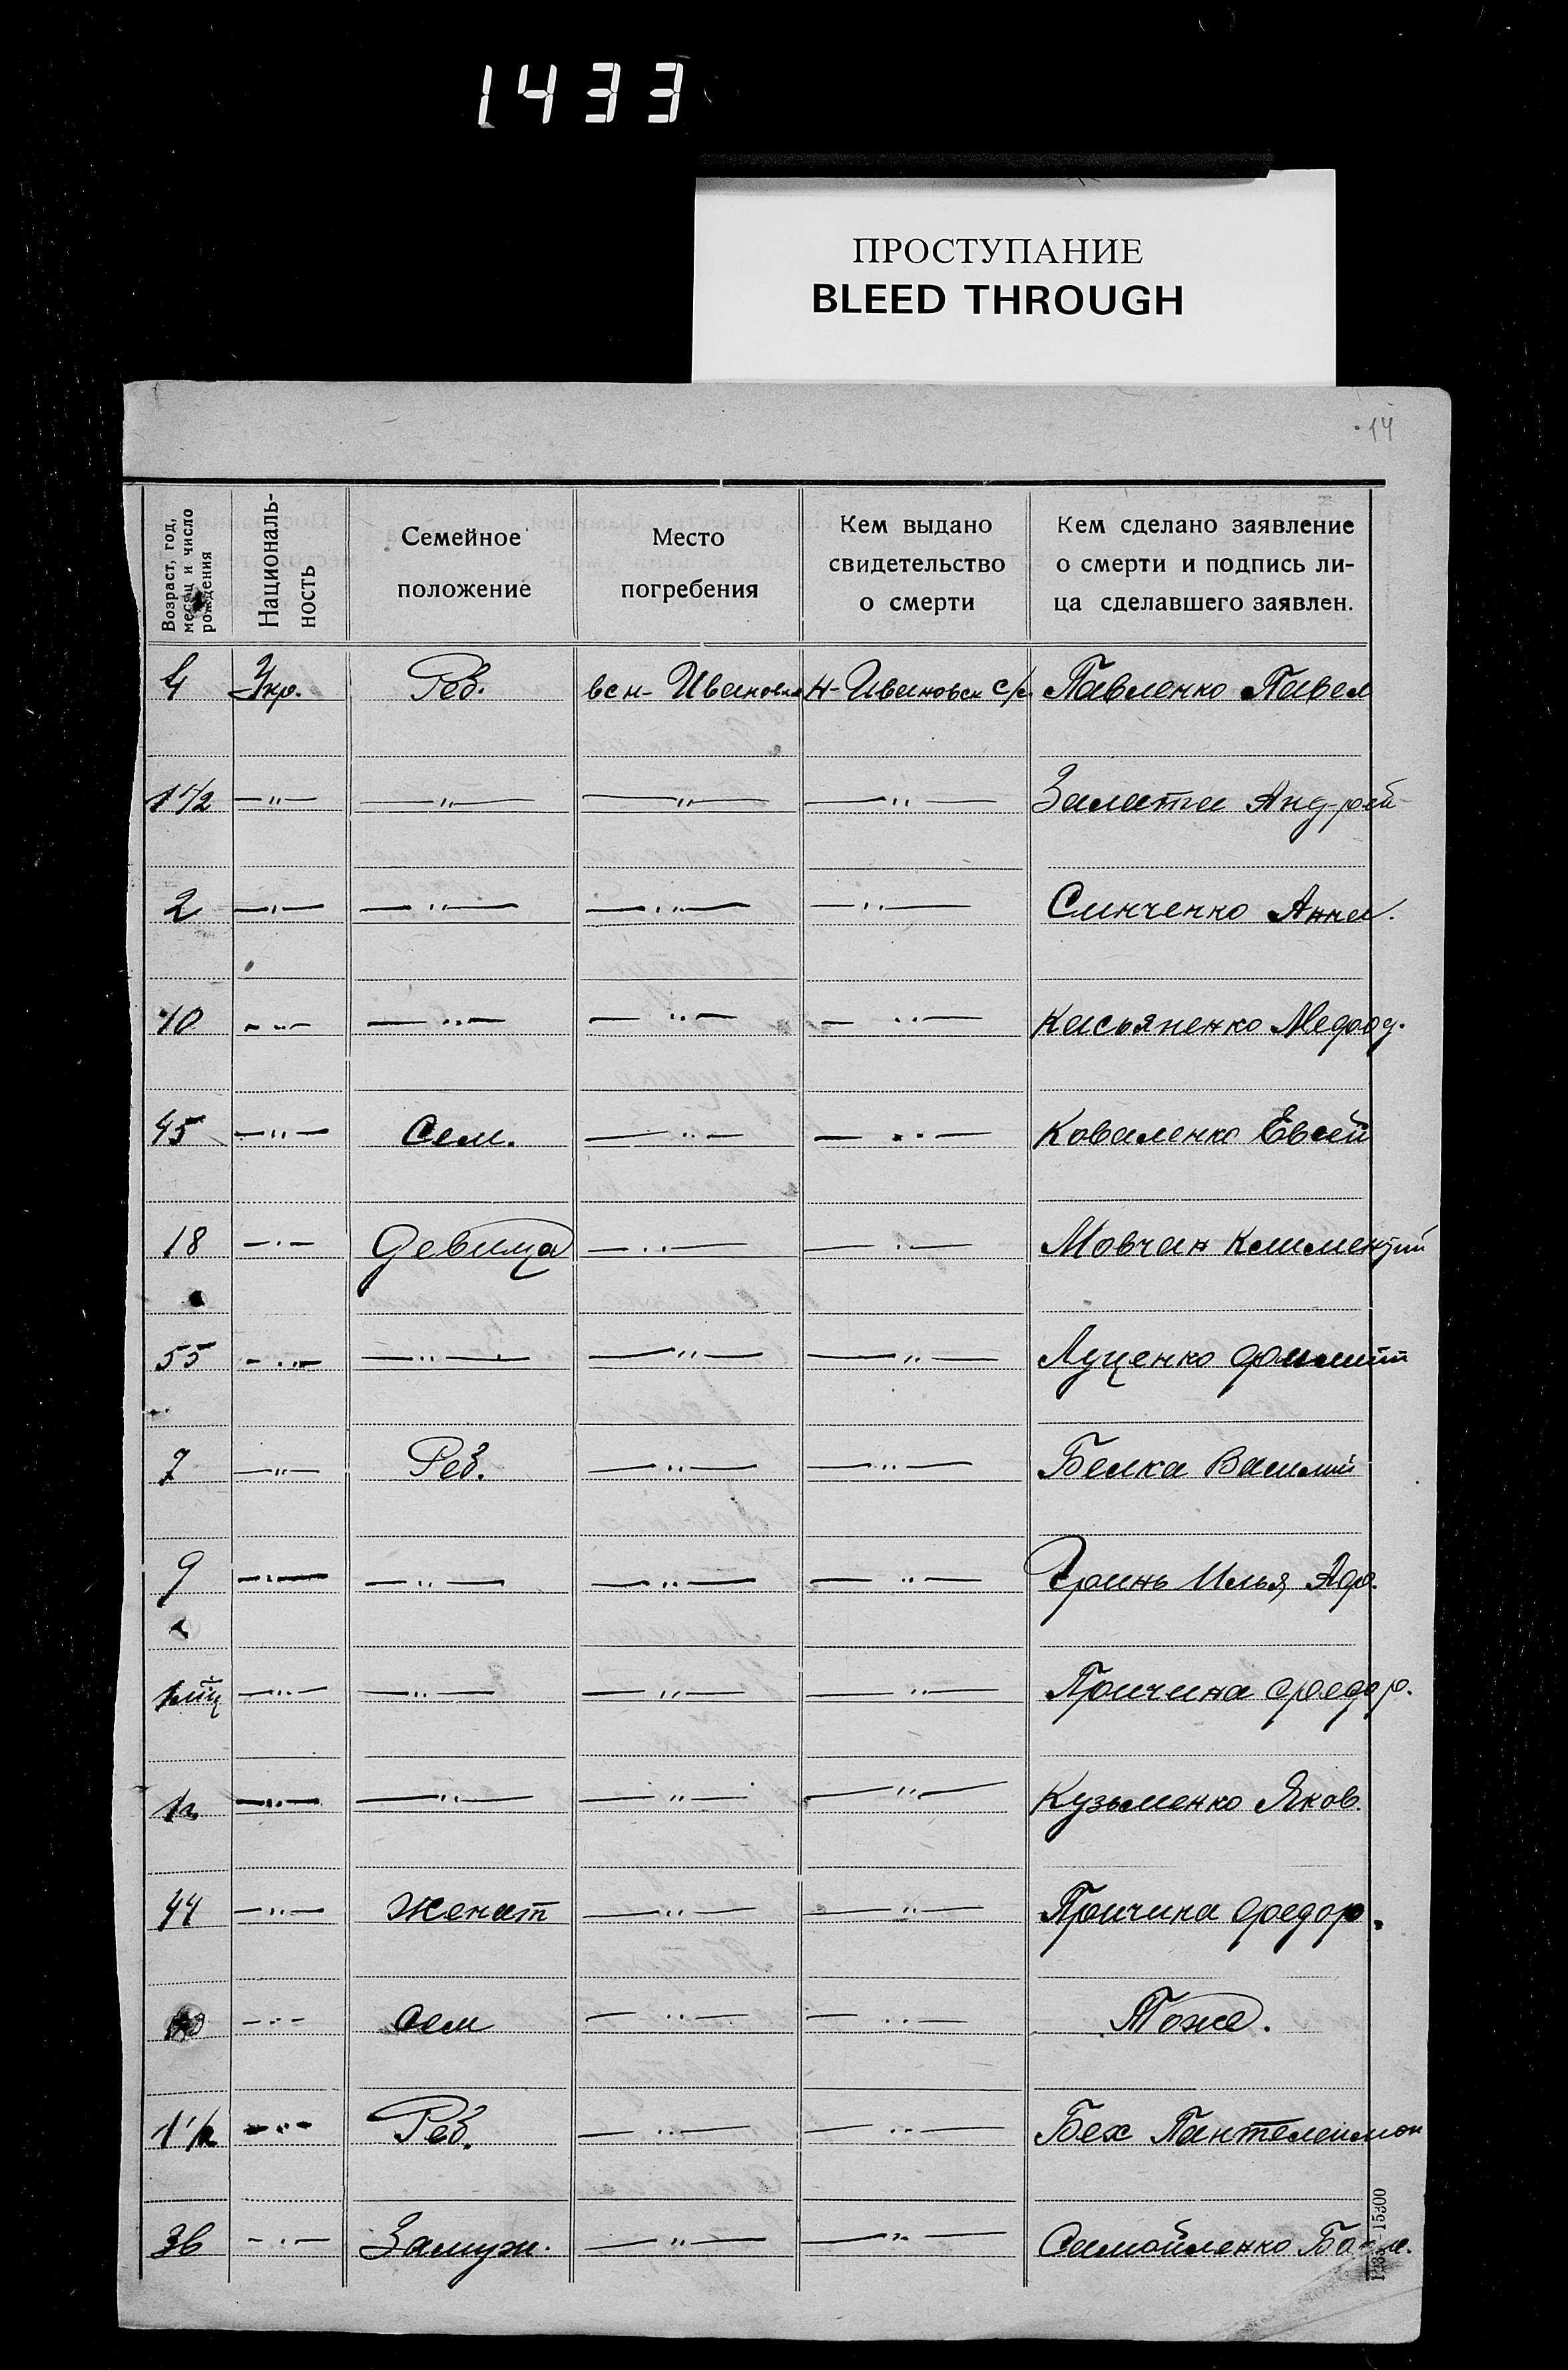 1433
ПРОСТУПАНИЕ
BLEED THROUGH
14
Возраст, год, месяц и число рождения
Националь-
ность
Семейное
положение
Место
погребения
Кем выдано
свидетельство
о смерти
Кем сделано заявление
о смерти и подпись ли-
ца сделавшего заявлен.
4 Укр. Реб. в с н-Ивановка Н-Ивановск с/с Павленко Павел
1 1/2 —"— —"— —"— —"— Залата Андрей
2 —"— —"— —"— —"— Синченко Анна.
10 —"— —"— —"— —"— Касьяненко Мефод.
45 —"— Сем. —"— —"— Коваленко Евсей
18 —"— Девица —"— —"— Мовчан Климентий
55 —"— —"— —"— —"— Луценко Филипп
7 —"— Реб. —"— —"— Белка Василий
9 —"— —"— —"— —"— Гринь Илья
—"— —"— —"— —"— Причина Федор.
—"— —"— —"— —"— Кузьменко Яков.
44 —"— Женат —"— —"— Причина Федор.
—"— Сем —"— —"— Тоже.
1 1/2 —"— Реб. —"— —"— Бех Пантелеимон
36 —"— Замуж. —"— —"— Самойленко